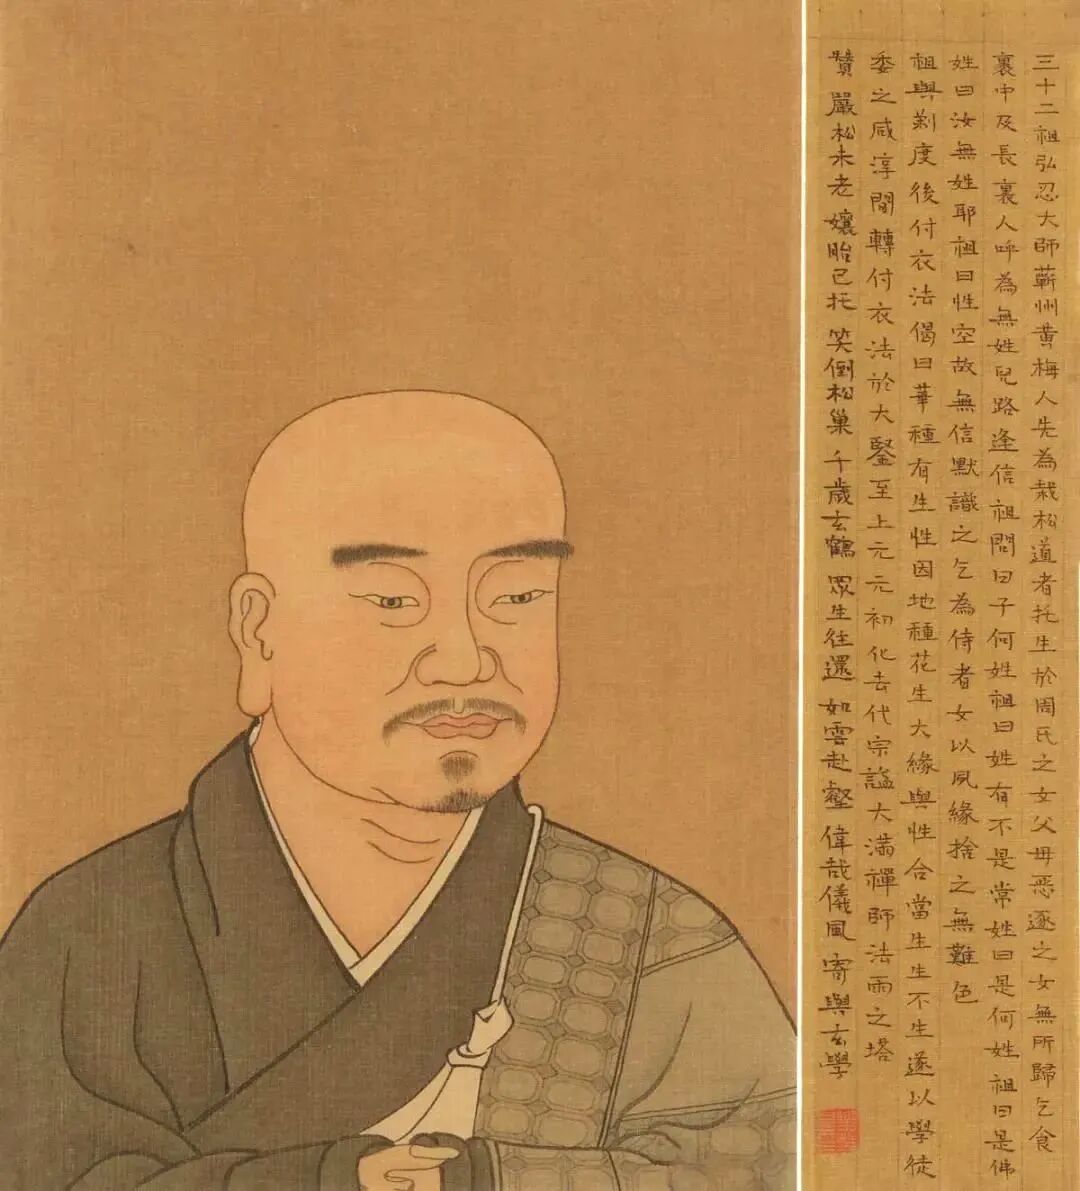 三十二祖弘忍大師蘄州黃梅人先為栽松道者托生於周氏之女父母惡逐之女無所歸乞食
裏中及長裏人呼為無姓兒路逢信祖問曰子何姓祖曰姓有不是常姓曰是何姓祖曰是佛
姓曰汝無姓耶祖曰性空故無信默識之乞為侍者女以夙緣捨之無難色
祖與剃度後付衣法偈曰華種有生性因地種花生大緣與性合當生生不生遂以學徒
委之咸淳間轉付衣法於大鑒至上元元初化去代宗謚大滿禪師法雨之塔
贊 嚴松未老 孃胎已托 笑倒松巢 千歲玄鶴 眾生往還 如雲赴壑 偉哉儀風 寄與玄學